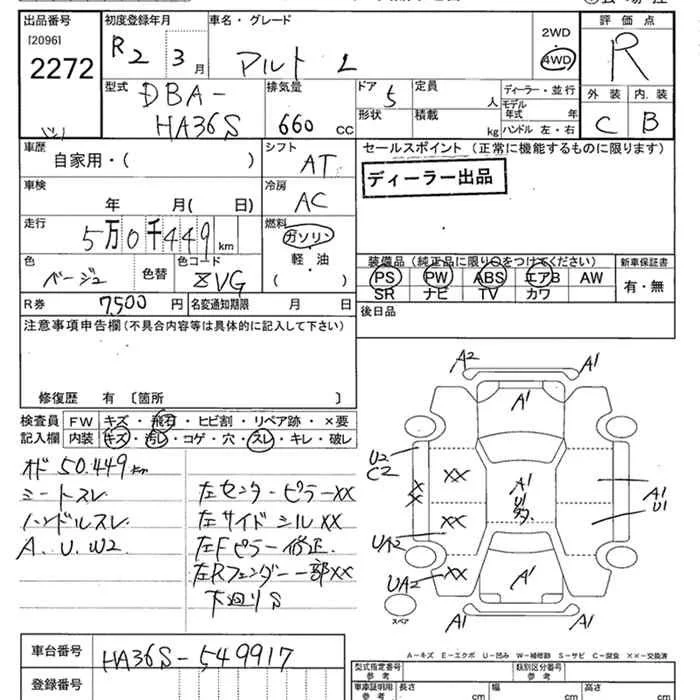 出品番号
[2096]
2272
初度登録年月
R2 3月
車名・グレード
アルト L
2WD
4WD
評価点
R
外装 内装
C B
型式
DBA-
HA36S
排気量
660 CC
ドア 5
形状
定員 人
積載 kg
ディーラー・並行
モデル年式 年
ハンドル 左・右
車歴
自家用・( )
シフト
AT
車検
年 月( 日)
冷房
AC
走行
5万0千449 km
燃料
ガソリン
軽・油
( )
色
ベージュ
色替
色コード
ZVG
R券 7,500 円
名変通知期限 月 日
セールスポイント (正常に機能するものに限ります)
ディーラー出品
装備品(純正品に限り○をつけてください)
新車保証書
PS PW ABS エアB AW
SR ナビ TV カワ
有・無
後日品
注意事項申告欄(不具合内容等は具体的に記入して下さい)
修復歴 有 〔箇所 〕
検査員
記入欄
FW キズ・飛石・ヒビ割・リペア跡・×要
内装 キズ・汚レ・コゲ・穴・スレ・キレ・破レ
オド 50.449km
シートスレ
ハンドルスレ
A、U、W2
左センターピラーXX
左サイドシルXX
左Fピラー修正
左Rフェンダー一部XX
下廻りS
A2
A1
A1
U2
C2
XX
XX
XX
A1
U1
A1
U1
UA2
UA2
A1
A1
A1
スペア
A-キズ E-エクボ U-凹み W-補修跡 S-サビ C-腐食 XX-交換済
車台番号
HA36S-549917
登録番号
型式指定番号
参考
類別区分番号
参考
車庫証明用
参考
長さ cm
幅 cm
高さ cm